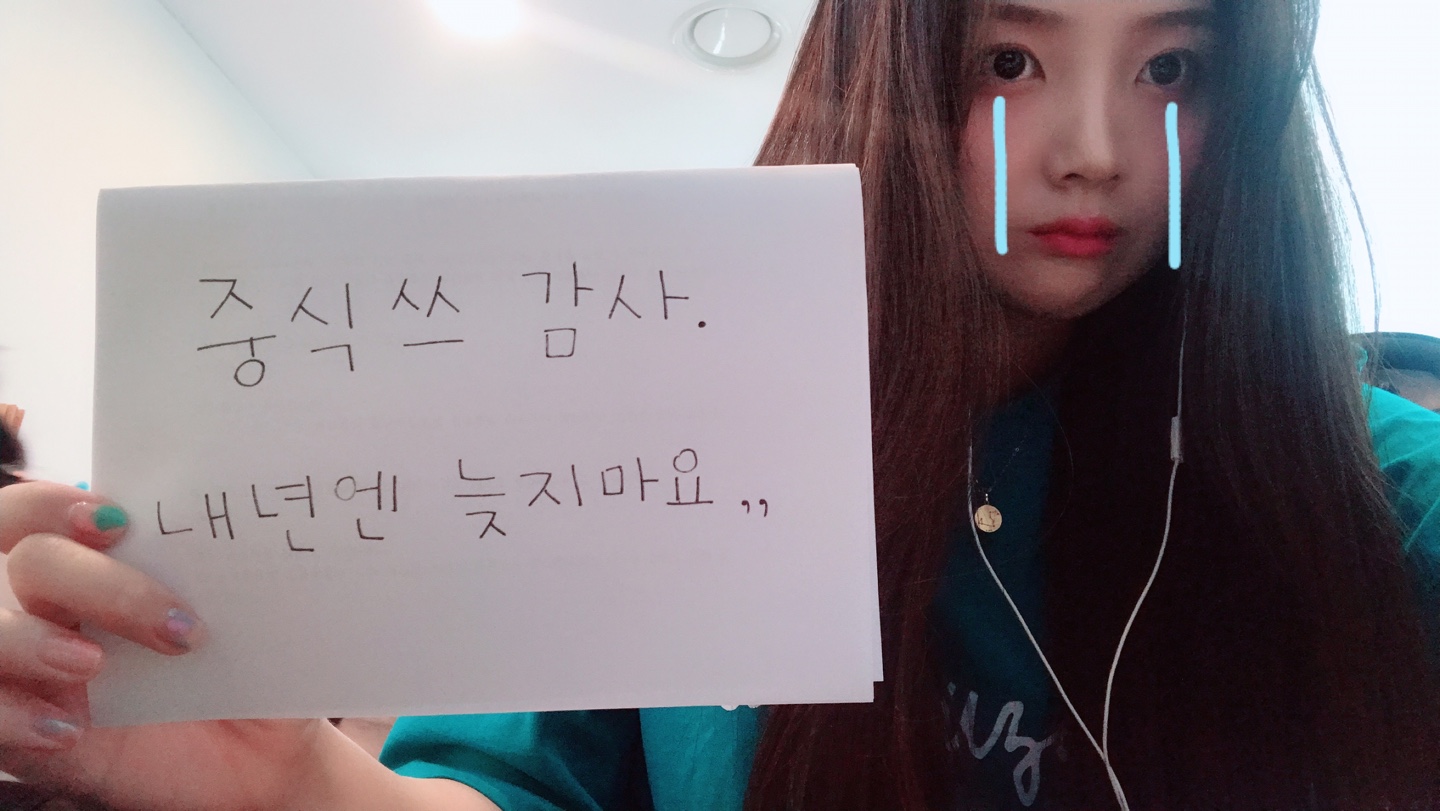 중식쓰 감사.
내년엔 늦지마요,,